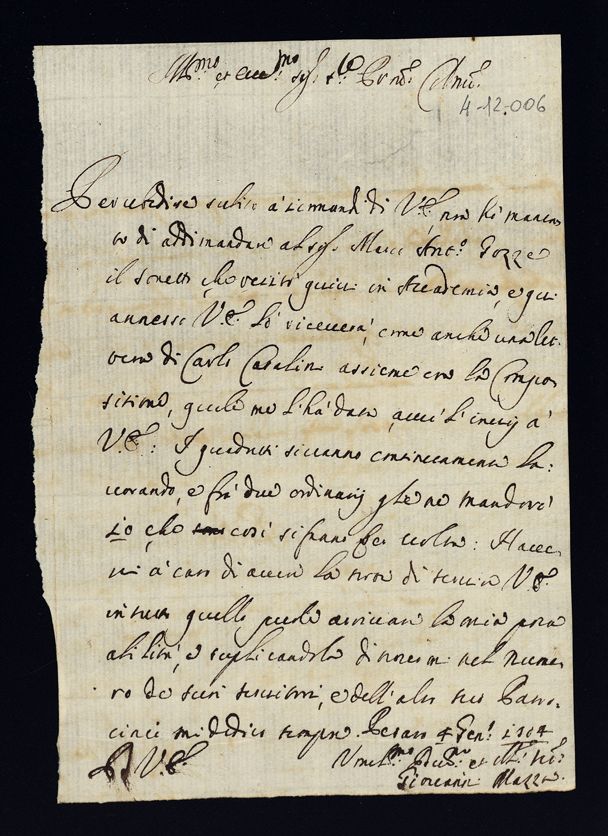 Ill.mo et Ecc.mo Sig.r
4-12.006
Per ubidire subito à comandi di V.E. non hò manca
to di addimandare al Sig.r Marc Ant.o Gozze
il sonetto, che recitò quivi in Accademia, e qui
annesso V.E. lo riceverà, come anche una let-
tera di Carlo Casalini assieme con la Compo
sitione, quale me l'hà data, acciò l'invij à
V.E.: I quadretti si vanno continuamente la-
vorando, e frà due ordinarij gle ne manderò
10 che così si fanno per volta: Havere
in tutto quello puole arrivare la mia poca
abilità, e suplicandola di tenermi nel nume-
ro de suoi servitori, e dell'alto suo Patro-
cinio mi dedico sempre. Pesaro 4 Gen.o 1704
D V.E.
Giovanni Mazza